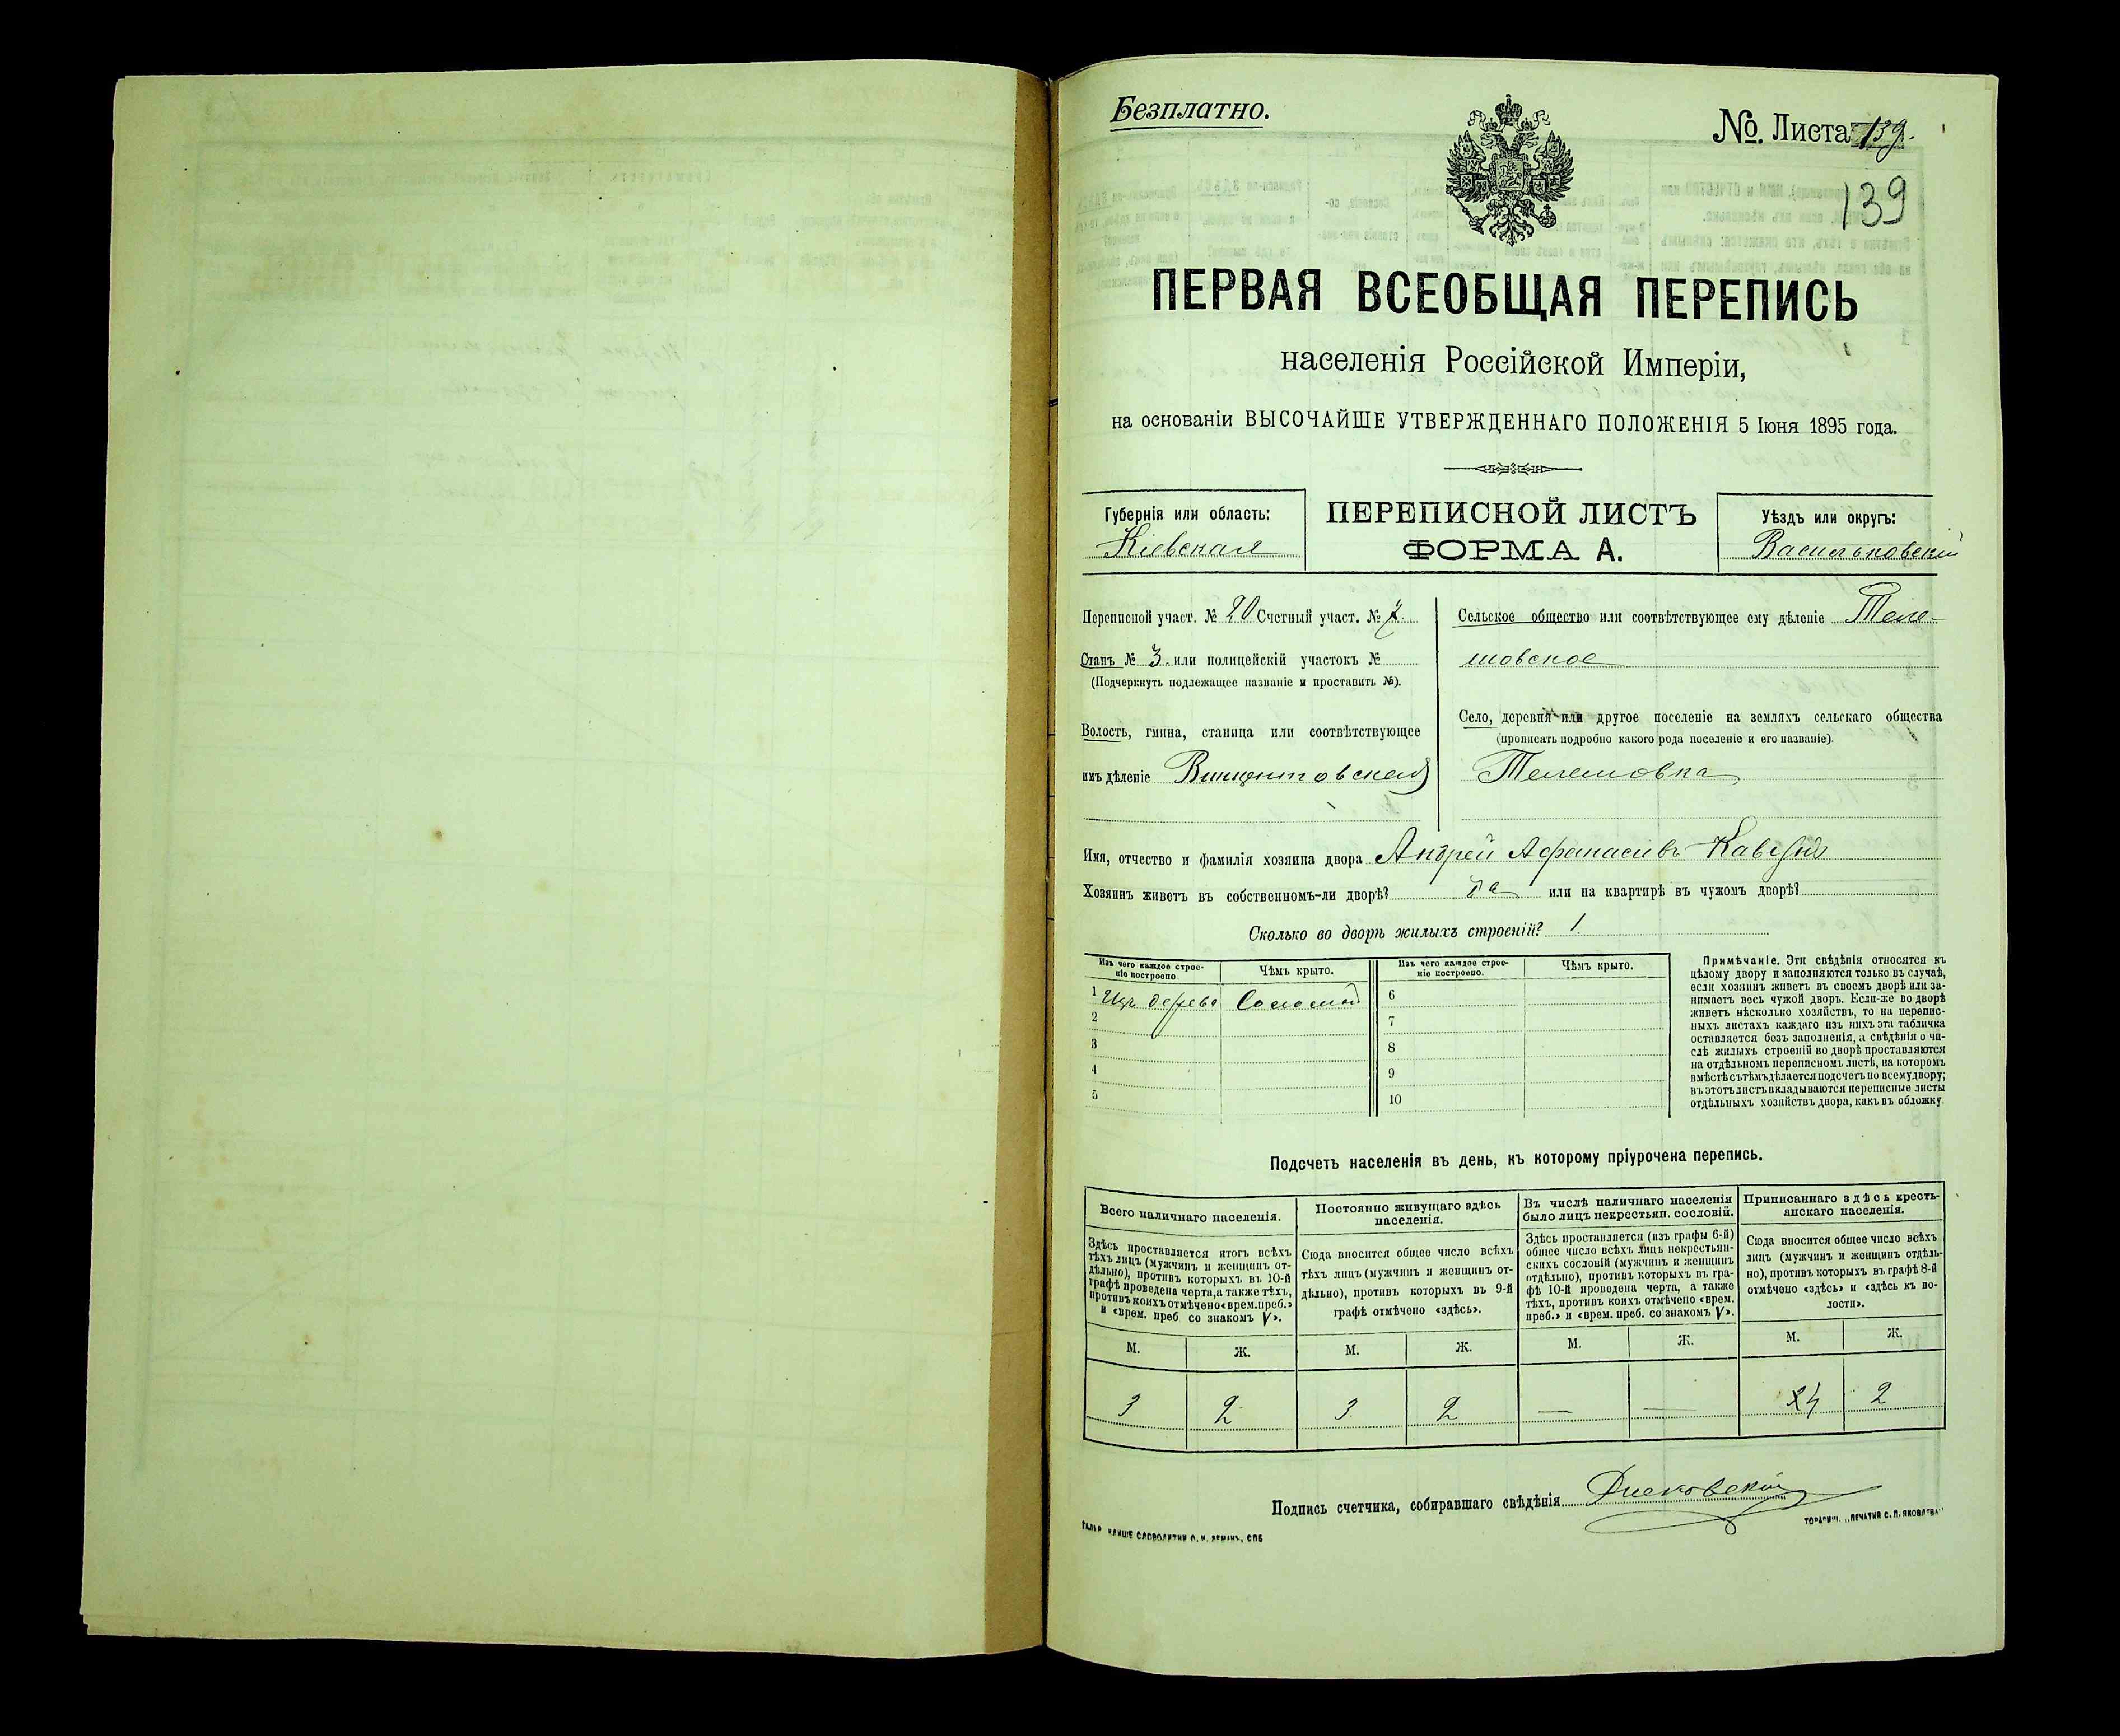 Безплатно.
№. Листа 139.
139
ПЕРВАЯ ВСЕОБЩАЯ ПЕРЕПИСЬ
населенія Россійской Имперіи,
на основаніи ВЫСОЧАЙШЕ УТВЕРЖДЕННАГО ПОЛОЖЕНІЯ 5 Іюня 1895 года.
Губернія или область:
Кіевская
ПЕРЕПИСНОЙ ЛИСТЪ
ФОРМА А.
Уѣздъ или округъ:
Васильковскій
Переписной участ. № 20 Счетный участ. № 2.
Станъ № 3. или полицейскій участокъ №
(Подчеркнуть подлежащее названіе и проставить №).
Волость, гмина, станица или соотвѣтствующее
имъ дѣленіе Винцентовская
Сельское общество или соотвѣтствующее ему дѣленіе Теле-
шовское
Село, деревня или другое поселеніе на земляхъ сельскаго общества
(прописать подробно какого рода поселеніе и его названіе).
Телешовка
Имя, отчество и фамилія хозяина двора Андрей Афанасіевъ
Хозяинъ живетъ въ собственномъ-ли дворѣ? да или на квартирѣ въ чужомъ дворѣ?
Сколько во дворѣ жилыхъ строеній? 1
Изъ чего каждое строе-
ніе построено.
Чѣмъ крыто.
Изъ чего каждое строе-
ніе построено.
Чѣмъ крыто.
1 Изъ дерева Соломой
2
3
4
5
6
7
8
9
10
Примѣчаніе. Эти свѣдѣнія относятся къ
цѣлому двору и заполняются только въ случаѣ,
если хозяинъ живетъ въ своемъ дворѣ или за-
нимаетъ весь чужой дворъ. Если-же во дворѣ
живетъ нѣсколько хозяйствъ, то на перепис-
ныхъ листахъ каждаго изъ нихъ эта табличка
оставляется безъ заполненія, а свѣдѣнія о чи-
слѣ жилыхъ строеній во дворѣ проставляются
на отдѣльномъ переписномъ листѣ, на которомъ
вмѣстѣ съ тѣмъ дѣлается подсчетъ по всему двору;
въ этотъ листъ вкладываются переписные листы
отдѣльныхъ хозяйствъ двора, какъ въ обложку.
Подсчетъ населенія въ день, къ которому пріурочена перепись.
Всего наличнаго населенія.
Здѣсь проставляется итогъ всѣхъ
тѣхъ лицъ (мужчинъ и женщинъ от-
дѣльно), противъ которыхъ въ 10-й
графѣ проведена черта, а также тѣхъ,
противъ коихъ отмѣчено «врем. преб.»
и «врем. преб. со знакомъ V».
Постоянно живущаго здѣсь
населенія.
Сюда вносится общее число всѣхъ
тѣхъ лицъ (мужчинъ и женщинъ от-
дѣльно), противъ которыхъ въ 9-й
графѣ отмѣчено «здѣсь».
Въ числѣ наличнаго населенія
было лицъ некрестьян. сословій.
Здѣсь проставляется (изъ графы 6-й)
общее число всѣхъ лицъ некрестьян-
скихъ сословій (мужчинъ и женщинъ
отдѣльно), противъ которыхъ въ гра-
фѣ 10-й проведена черта, а также
тѣхъ, противъ коихъ отмѣчено «врем.
преб.» и «врем. преб. со знакомъ V».
Приписаннаго здѣсь кресть-
янскаго населенія.
Сюда вносится общее число всѣхъ
лицъ (мужчинъ и женщинъ отдѣль-
но), противъ которыхъ въ графѣ 8-й
отмѣчено «здѣсь» и «здѣсь къ во-
лости».
М. Ж. М. Ж. М. Ж. М. Ж.
3 2 3 2 — — 4 2
Подпись счетчика, собиравшаго свѣдѣнія